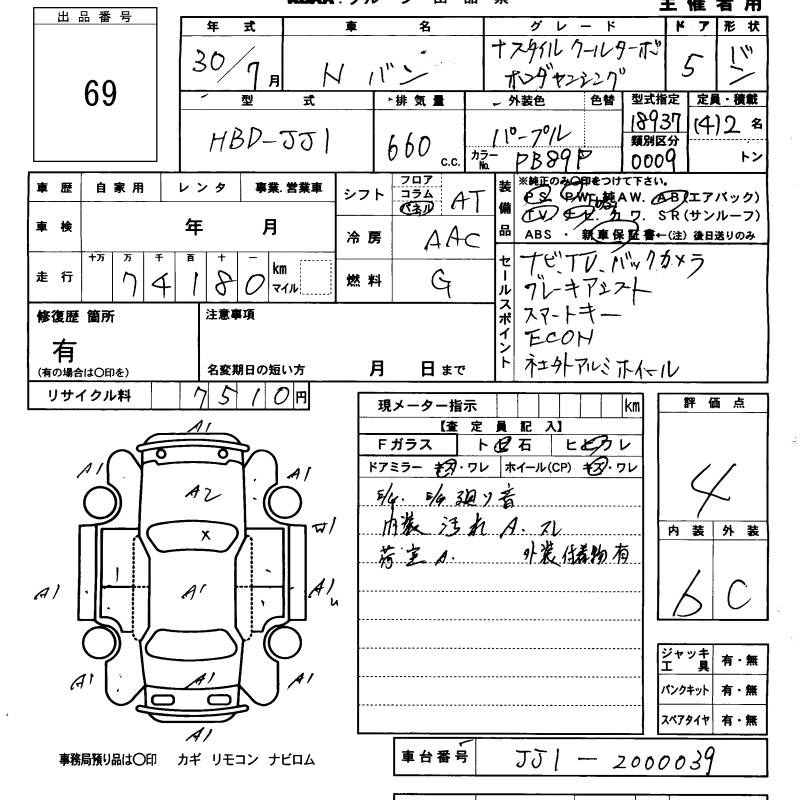 主催者用
出品番号
69
年式 車名 グレード ドア 形状
30/7月 N バン +スタイル クールターボ ホンダセンシング 5 バン
型式 排気量 外装色 色替 型式指定 定員・積載
HBD-JJ1 660 c.c. パープル 18937 (4)2名
カラーNo. PB89P 類別区分 0009 トン
車歴 自家用 レンタ 事業.営業車
車検 年 月
走行 十万 万 千 百 十 一
74180 km マイル
シフト フロア コラム パネル AT
冷房 AAC
燃料 G
装備品
※純正のみ〇印をつけて下さい。
PS. PW. 純AW. AB(エアバック)
TV. ナビ. カワ. SR(サンルーフ)
ABS・新車保証書←(注)後日送りのみ
セールスポイント
ナビ、TV、バックカメラ
ブレーキアシスト
スマートキー
ECON
社外アルミホイール
修復歴 箇所
有
(有の場合は〇印を)
注意事項
名変期日の短い方 月 日まで
リサイクル料 7510円
現メーター指示 km
【査定員記入】
Fガラス ト 石 ヒ ワレ
ドアミラー キズ・ワレ ホイール(CP) キズ・ワレ
E/G. E/G廻り音
内装 汚れ A. スレ
荷室 A. 外装付着物有
評価点
4
内装 外装
b C
ジャッキ 工具 有・無
パンクキット 有・無
スペアタイヤ 有・無
A1
A1 A1
A2
X
A1 A1 A1
A1 A1
A1
事務局預り品は〇印 カギ リモコン ナビロム
車台番号 JJ1-2000039